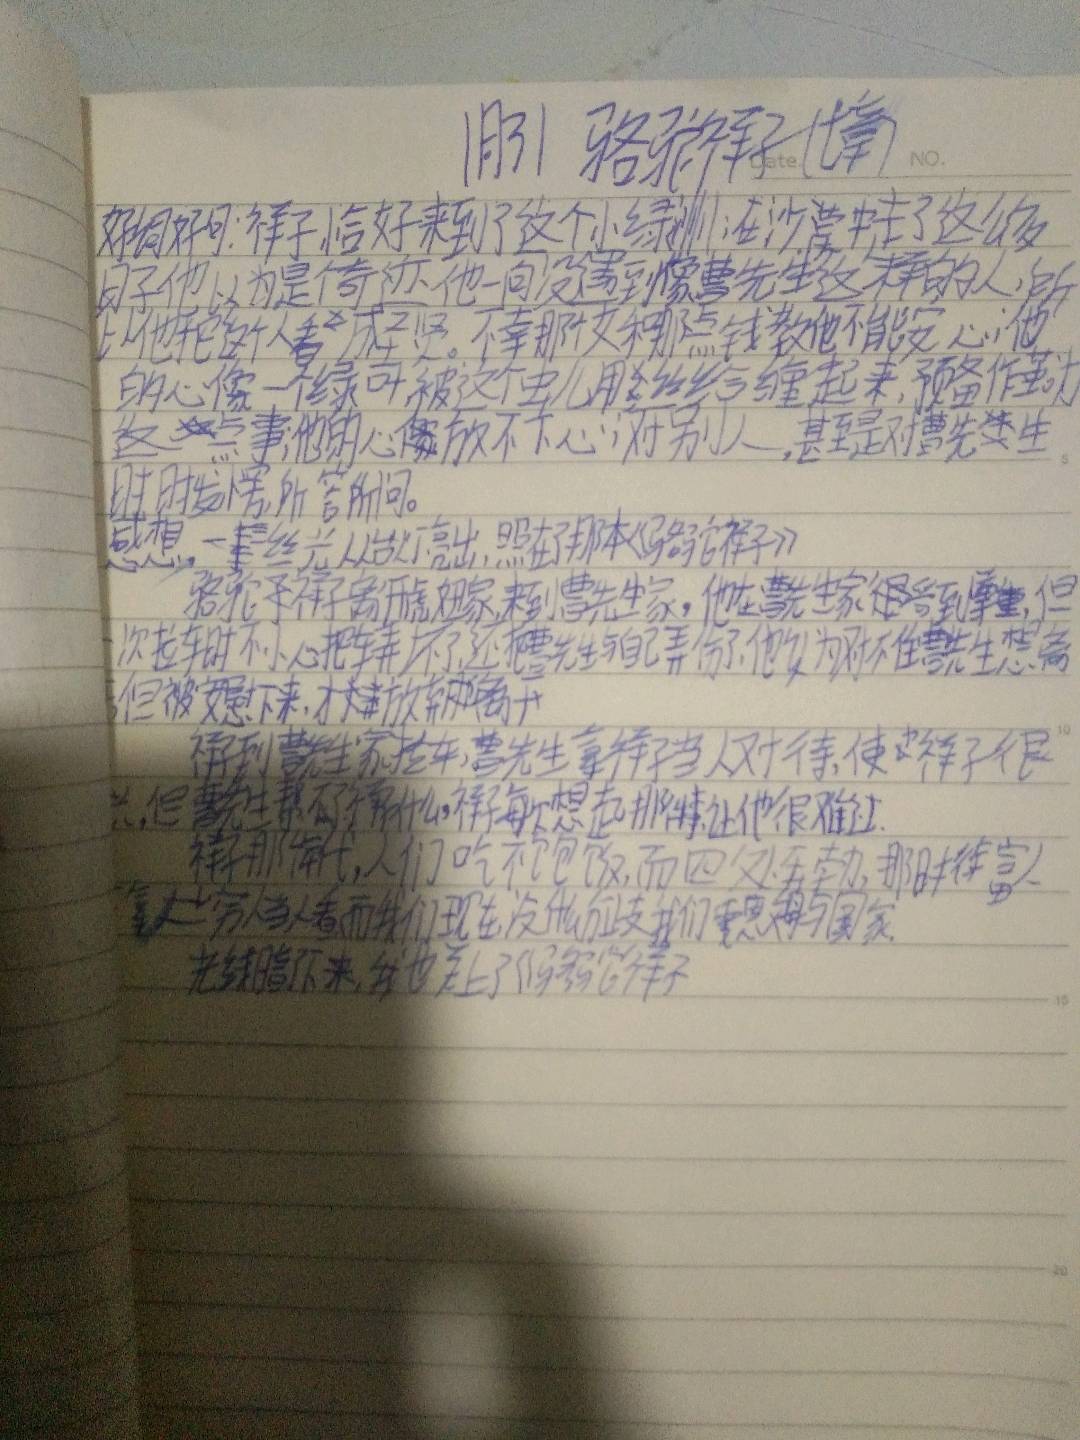 骆驼祥子 Date. NO.
好词好句:祥子,恰好来到了这个小绿洲;在沙漠中走了这么多
日子他以为是个奇迹。他一向没遇到像曹先生这样的人,所
以他把这个人看成圣贤。不幸那个女和那点钱教他不能安心;他
的心像一个绿叶被这个虫儿用丝给缠起来,预备作茧为
这点事,他的心放不下心;对别人,甚至是对曹先生
时时发愣,所答所问。 5
感想。一丝光从台灯亮出,照在了那本《骆驼祥子》
骆驼祥子离开虎妞家,来到曹先生家。他在曹先生家得到尊重,但
次拉车时不小心把车弄坏了,还把曹先生与自己弄伤了,他以为对不住曹先生想离
但被安慰下来,才放弃离开 10
祥子到曹先生家拉车,曹先生拿祥子当人对待,使祥子很
,但曹先生帮不了祥子什么,祥子每次想起那件事,让他很难过.
祥子那年代,人们吃不饱饭,而四处,那时待富人
穷人当人看而我们现在没什么我们与国家
光线暗下来,我也关上了《骆驼祥子 15
20